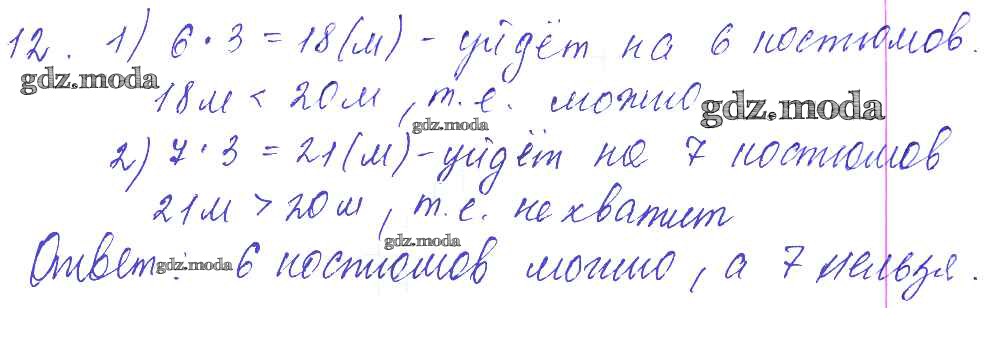 12. 1) 6 · 3 = 18 (м) - уйдёт на 6 костюмов.
gdz.moda
18м < 20м, т.е. можно
gdz.moda
gdz.moda
2) 7 · 3 = 21 (м) - уйдёт на 7 костюмов
21м > 20м, т.е. не хватит
gdz.moda
Ответ: 6 костюмов можно, а 7 нельзя.
gdz.moda